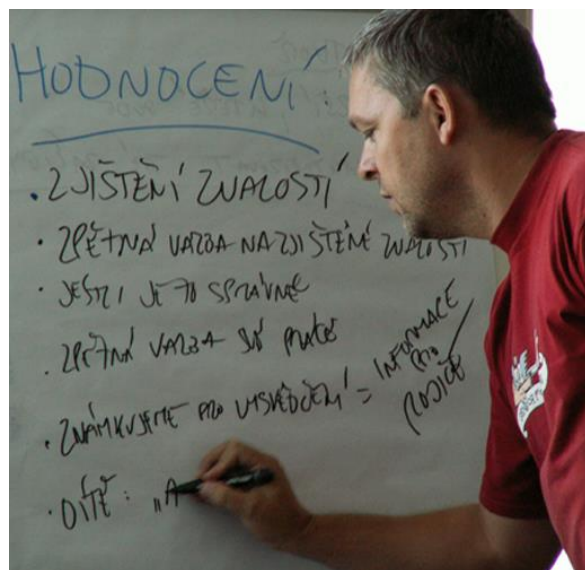 HODNOCENÍ
• ZJIŠTĚNÍ ZNALOSTÍ
• ZPĚTNÁ VAZBA NA ZJIŠTĚNÉ ZNALOSTI
• JESTLI JE TO SPRÁVNĚ
• ZPĚTNÁ VAZBA SVÉ PRÁCE
• ZNÁMKUJEME PRO VYSVĚDČENÍ = INFORMACE
PRO
RODIČE
• DÍTĚ: „A